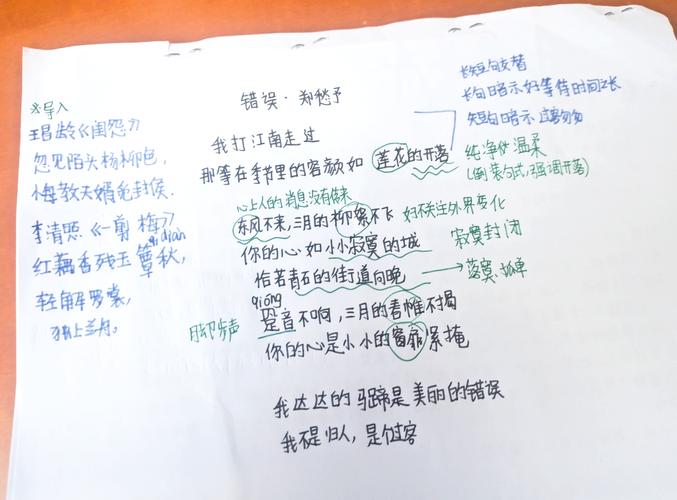 错误·郑愁予
我打江南走过
那等在季节里的容颜如莲花的开落
心上人的消息没有传来
东风不来,三月的柳絮不飞 妇不关注外界变化
你的心如小小寂寞的城 寂寞封闭
恰若青石的街道向晚 → 落寞·孤单
qióng
脚步声 跫音不响,三月的春帷不揭
你的心是小小的窗扉紧掩
我达达的马蹄是美丽的错误
我不是归人,是个过客
※导入
王昌龄《闺怨》
忽见陌头杨柳色,
悔教夫婿觅封侯.
李清照《一剪梅》
diàn
红藕香残玉簟秋,
轻解罗裳,
独上兰舟。
长短句交替
长句暗示好等待时间之长
短句暗示过客匆匆
纯净 温柔
(倒装句式,强调开落)